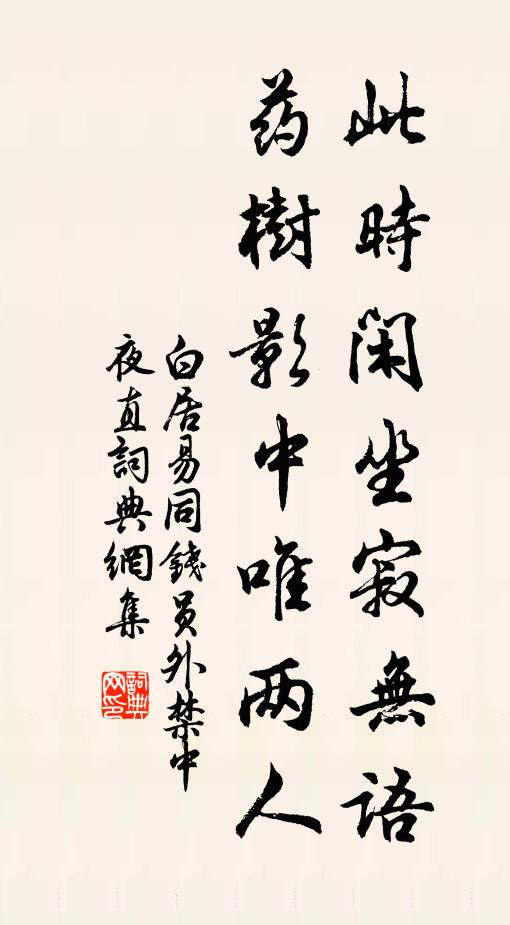 此時闲坐寂無語
药樹影中唯两人
白居易同錢員外禁中
夜直詞典網集
詞典网印